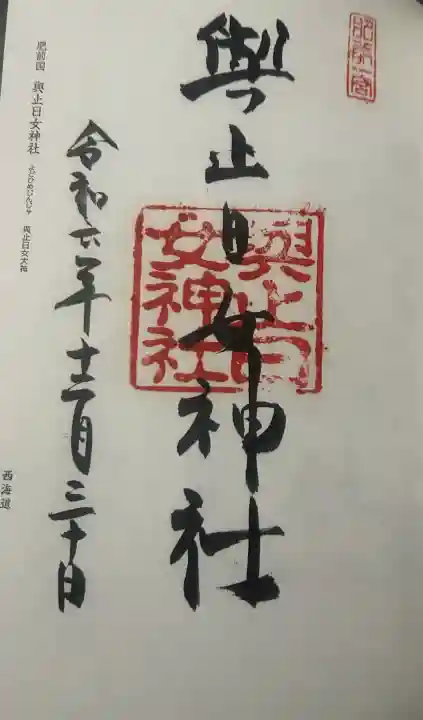 肥前一宮
與止日女神社
與止日女神社
令和六年十二月三十日
肥前国 與止日女神社 よどひめじんじゃ 與止日女大神
西海道